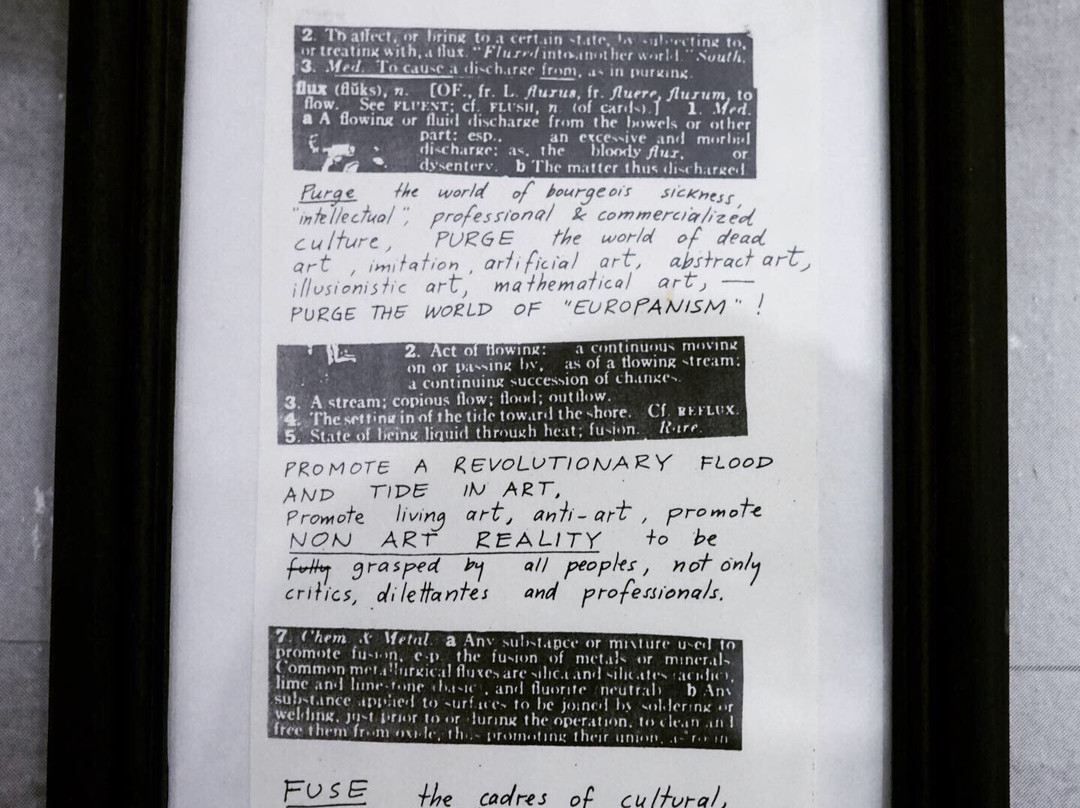 2. To affect, or bring to a certain state, by subjecting to,
or treating with, a flux. "Fluxed into another world." South.
3. Med. To cause a discharge from, as in purging.
flux (flŭks), n. [OF., fr. L. fluxus, fr. fluere, fluxum, to
flow. See FLUENT; cf. FLUSH, n. (of cards).] 1. Med.
a A flowing or fluid discharge from the bowels or other
part: esp., an excessive and morbid
discharge: as, the bloody flux, or
dysentery. b The matter thus discharged.
Purge the world of bourgeois sickness,
"intellectual", professional & commercialized
culture, PURGE the world of dead
art, imitation, artificial art, abstract art,
illusionistic art, mathematical art, —
PURGE THE WORLD OF "EUROPANISM"!
2. Act of flowing: a continuous moving
on or passing by, as of a flowing stream:
a continuing succession of changes.
3. A stream; copious flow; flood; outflow.
4. The setting in of the tide toward the shore. Cf. REFLUX.
5. State of being liquid through heat; fusion. Rare.
PROMOTE A REVOLUTIONARY FLOOD
AND TIDE IN ART,
Promote living art, anti-art, promote
NON ART REALITY to be
fully grasped by all peoples, not only
critics, dilettantes and professionals.
7. Chem. & Metal. a Any substance or mixture used to
promote fusion, esp. the fusion of metals or minerals.
Common metallurgical fluxes are silica and silicates (acidic),
lime and limestone (basic), and fluorite (neutral). b Any
substance applied to surfaces to be joined by soldering or
welding, just prior to or during the operation, to clean and
free them from oxide, thus promoting their union, as rosin
FUSE the cadres of cultural,